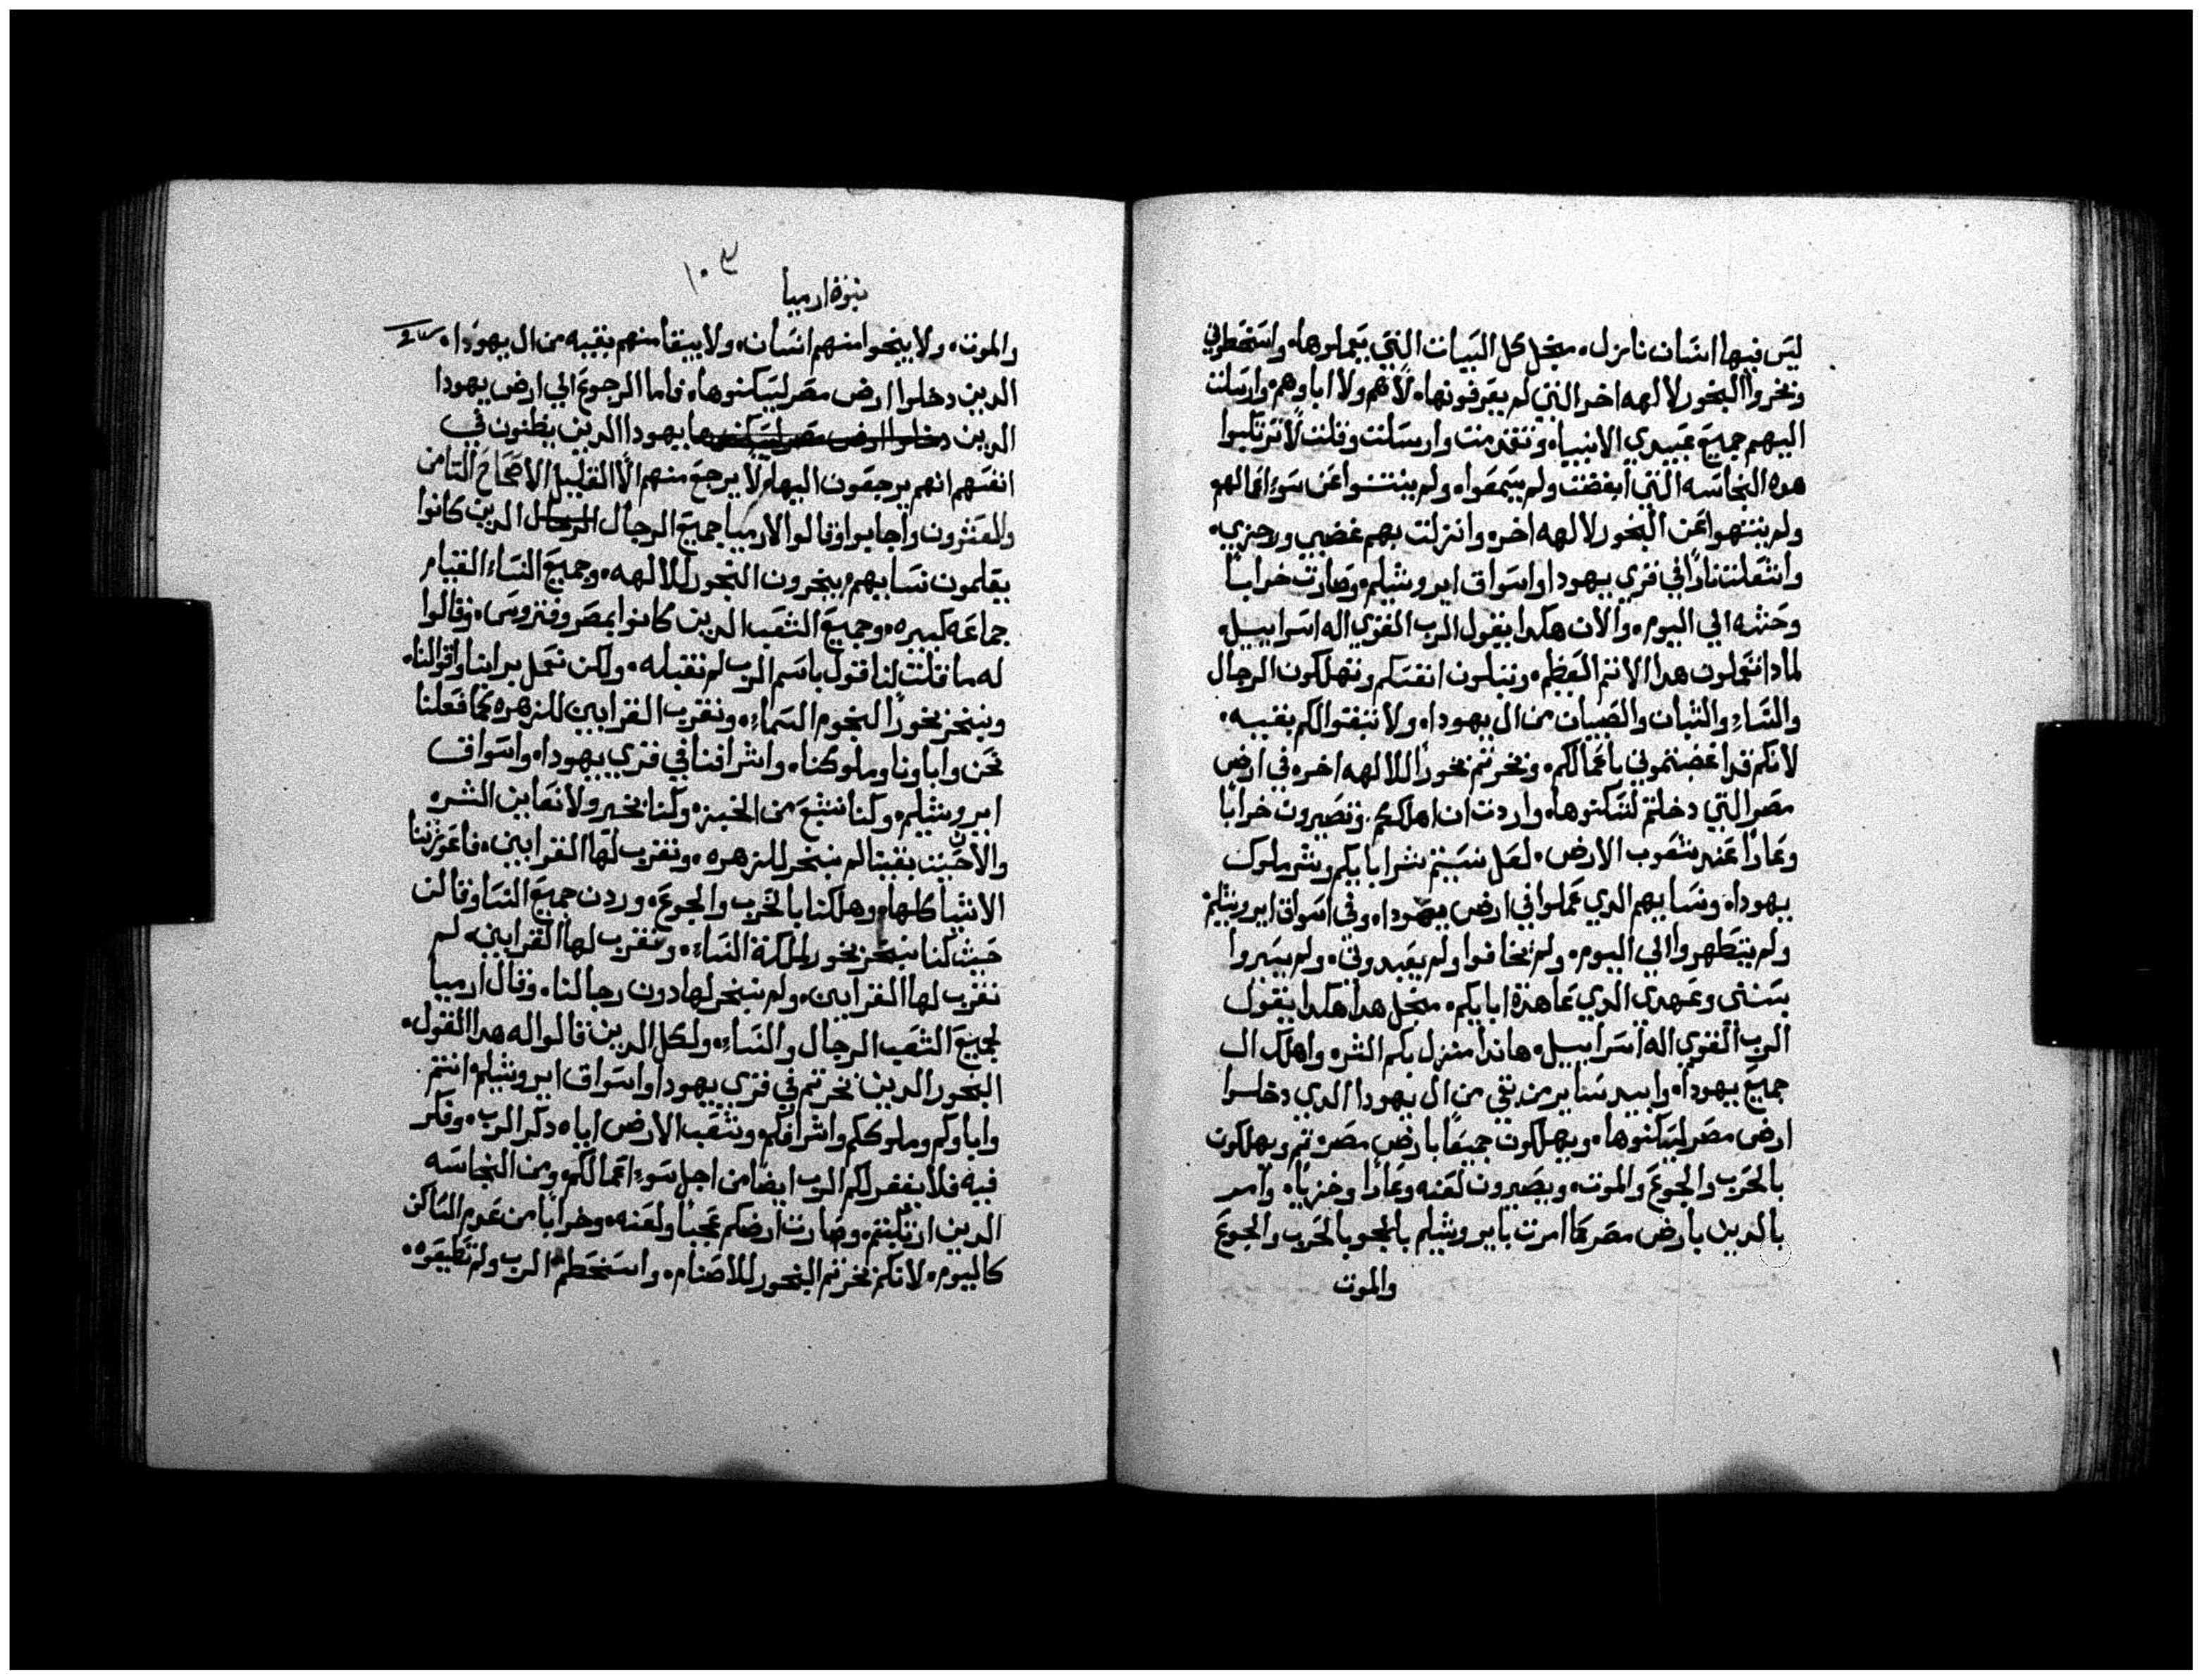 ليس فيها انسان نازل. منجل كل السيات التي يعملوها. واسخطوني
وبخروا البخور لالهه اخر التي لم يعرفونها. لاهم ولا اباوهم. وارسلت
اليهم جميع عبيدي الانبياء. وتقدمت وارسلت وقلت لا ترتكبوا
هده النجاسه التي ابغضت ولم يسمعوا. ولم ينتنوا عن سوء اعمالهم
ولم ينتهوا عن البخور لالهه اخره وانزلت بهم غضبي ورجزي.
واشعلت نارا في قري يهودا واسواق ايروشيلم. وصارت خرابا
وحشه الي اليوم. والان هكدا يقول الرب القوي اله اسراييل.
لمادا تعملون هدا الاتم العظيم. وتبلون انفسكم وتهلكون الرجال
والنساء والشبان والصبيان من ال يهودا. ولا تبقوا لكم بقييه.
لانكم قد اغضبتموني باعمالكم. وبخرتم بخورا للالهه اخره في ارض
مصر التي دخلتم لتسكنوها. واردت ان اهلككم. وتصيرون خرابا
وعارا عند شعوب الارض. لعل نسيتم شر ابايكم وشر ملوك
يهودا. ونسايهم الدي عملوا في ارض يهودا. وفي اسواق ايروشيلم
ولم يتطهروا الي اليوم. ولم يخافوا ولم يعبدوني. ولم يسيروا
بسنني وعهدي الدي عاهدة ابايكم. منجل هدا هكدا يقول
الرب القوي اله اسراييل. هاندا منزل بكم الشر. واهلك ال
جميع يهودا. وابيد ساير من بقي من ال يهودا الدي دخلوا
ارض مصر ليسكنوها. ويهلكون جميعا بارض مصر. تم ويهلكون
بالحرب والجوع والموت. ويصيرون لعنه وعارا وخزيا. وامر
بالدين بارض مصر كما امرت بايروشيلم بالحرب والجوع
والموت
١٠٣
نبوة ارميا
والموت. ولا ينجوا منهم انسان. ولا يبقا منهم بقيه من ال يهودا.
الدين دخلوا ارض مصر ليسكنوها. فاما الرجوع الي ارض يهودا
الدين دخلوا ارض مصر ليسكنوها يهودا الدين يظنون في
انفسهم انهم يرجعون اليها. لا يرجع منهم الا القليل الاصحاح التامن
والعشرون واجابوا وقالوا لارميا جميع الرجال الرجال الدين كانوا
يعلمون نسايهم يبخرون البخور للالهه. وجميع النساء القيام
جماعه كبيره. وجميع الشعب الدين كانوا بمصر وفتروس. وقالوا
له ما قلت لنا قول باسم الرب لم نقبله. ولكن نعمل براينا واقوالنا.
ونبخر بخورا لنجوم السماء. ونقرب القرابين للزهره كما فعلنا
نحن واباونا وملوكنا. واشرافنا في قري يهودا. واسواق
ايروشيلم. وكنا نشبع من الخبز. وكنا بخير ولا نعاين الشر.
والا حين بقينا لم نبخر للزهره. ونقرب لها القرابين. فاعوزتنا
الاشيا كلها. وهلكنا بالحرب والجوع. وردن جميع النسا وقالن
حيث كنا نبخر بخور لملكة السماء. ونقرب لها القرابين. لم
نقرب لها القرابين. ولم نبخر لها دون رجالنا. وقال ارميا
لجميع الشعب الرجال والنساء. ولكل الدين قالوا له هدا القول.
البخور الدين بخرتم في قري يهودا واسواق ايروشيلم. انتم
واباوكم وملوككم واشرافكم. وشعب الارض اياه دكر الرب. وفكر
فيه فلا يغفر لكم الرب ايضا من اجل سوء اعمالكم. ومن النجاسه
الدين ارتكبتم. وصارت ارضكم عجبا ولعنه. وخرابا من عدم الساكن
كاليوم. لانكم بخرتم البخور للاصنام. واسخطتم الرب ولم تطيعوه.